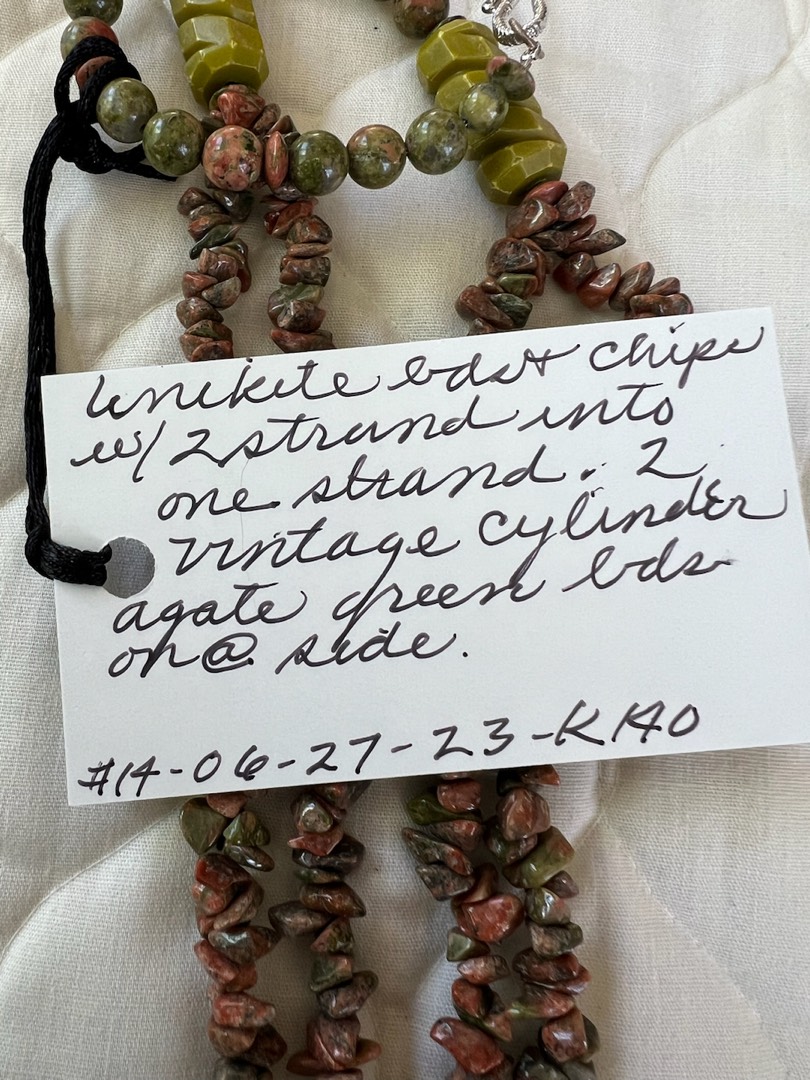 Unikite bds + chips
w/ 2 strand into
one strand. 2
vintage cylinder
agate green bds
on @ side.
#14-06-27-23-K140